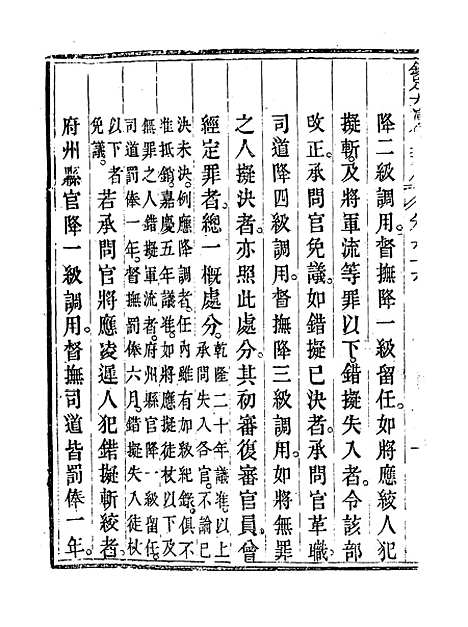 降二級調用。督撫降一級留任。如將應絞人犯
擬斬。及將軍流等罪以下。錯擬失入者。令該部
改正。承問官免議。如錯擬已決者。承問官革職。
司道降四級調用。督撫降三級調用。如將無罪
之人擬決者。亦照此處分。其初審復審官員。曾
經定罪者。總一概處分。乾隆二十年議准。以上
承問失入各官。不論已
決未決。例應降調者。任內雖有加級紀錄。俱不
准抵銷。嘉慶五年議准。如將應擬徒杖以下及
無罪之人錯擬軍流者。府州縣官降一級留任。
司道罰俸一年。督撫罰俸六月。錯擬失入徒杖
以下者
免議。若承問官將應凌遲人犯錯擬斬絞者。
府州縣官降一級調用。督撫司道皆罰俸一年。